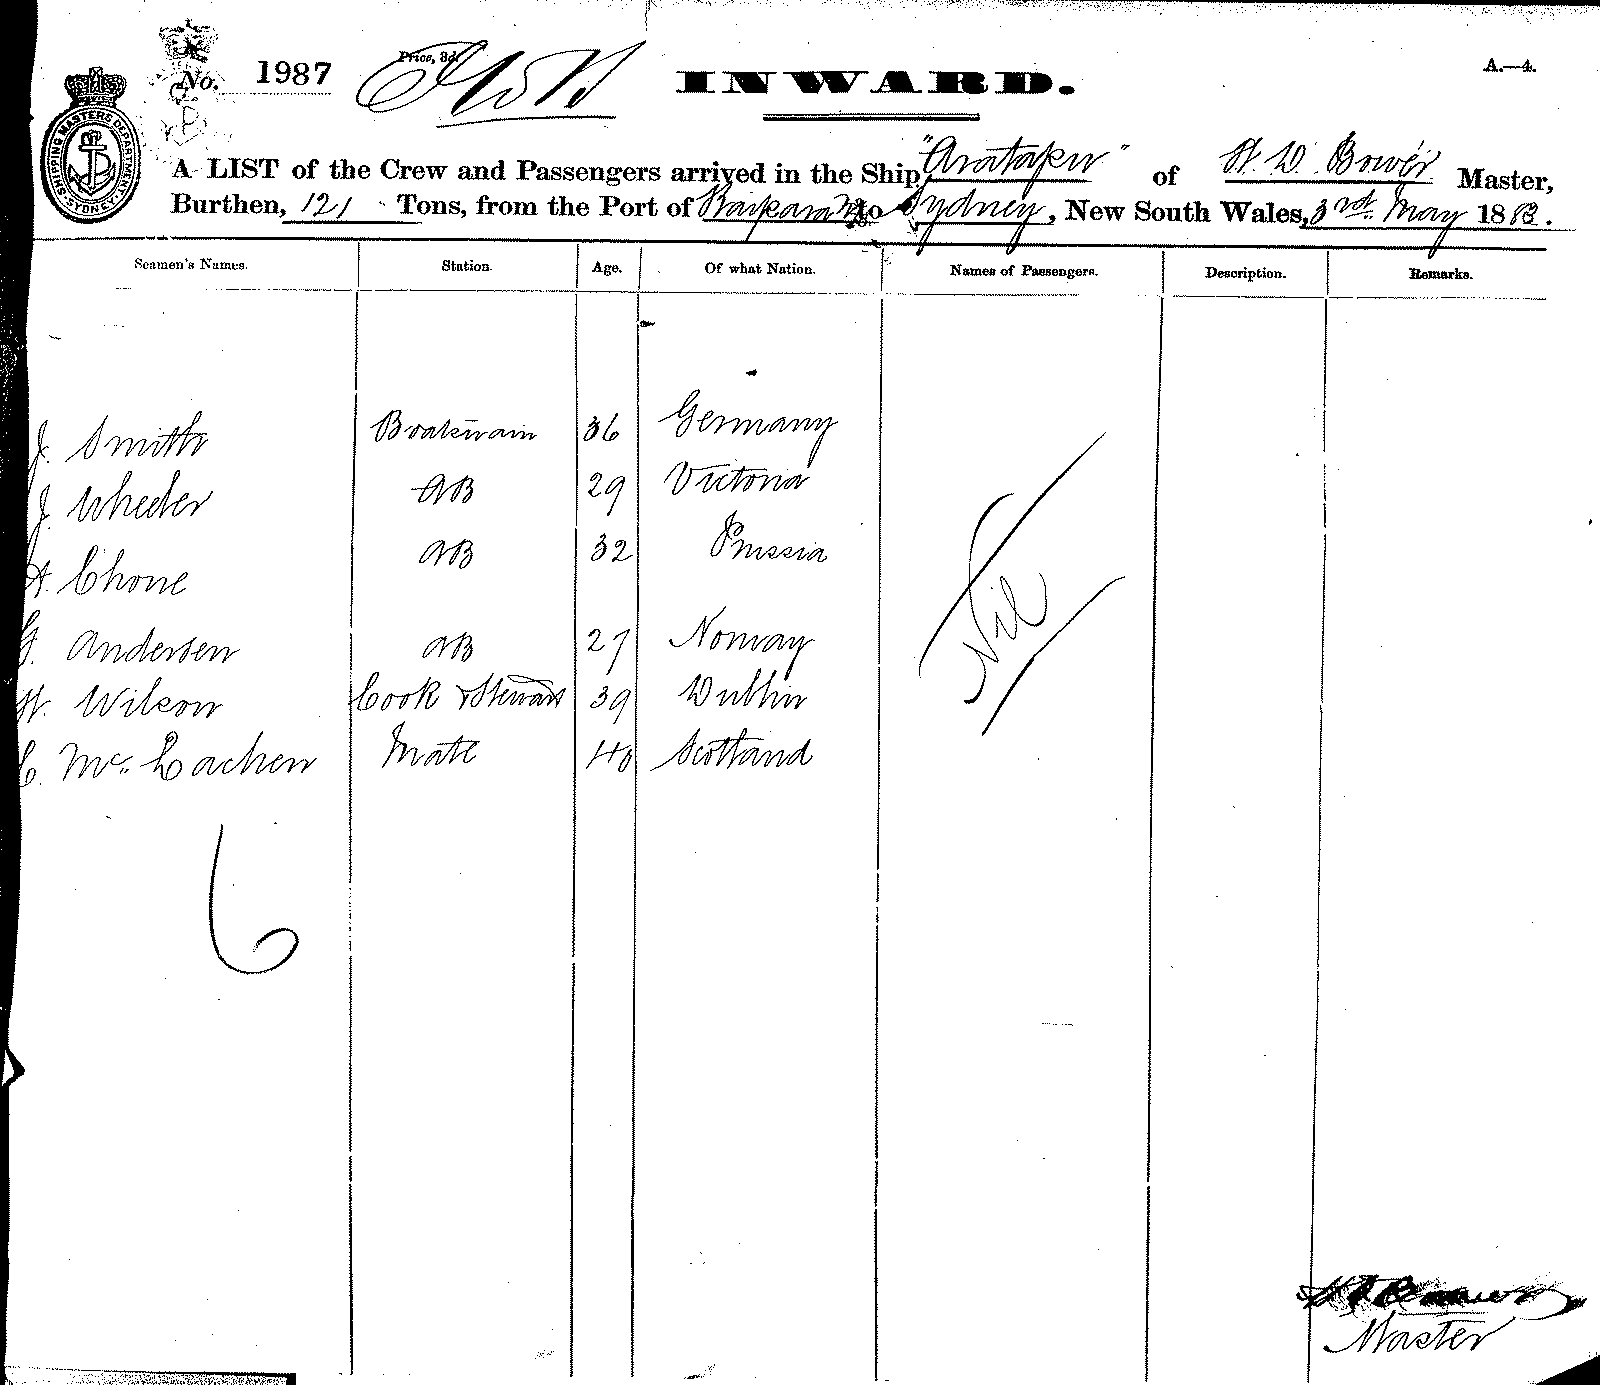 No. 1987 Price, 3d. INWARD. A.—4.
SHIPPING MASTERS DEPARTMENT SYDNEY
A LIST of the Crew and Passengers arrived in the Ship "Arataper" of H. D. Bower Master,
Burthen, 121 Tons, from the Port of to Sydney, New South Wales, 3rd. May 1883.
Seamen's Names. Station. Age. Of what Nation. Names of Passengers. Description. Remarks.
J. Smith Boatswain 36 Germany
J. Wheeler AB 29 Victoria
A. Chone AB 32 Prussia
G. Andersen AB 27 Norway
H. Wilson Cook & Steward 39 Dublin
C. McLachen Mate 40 Scotland
Nil
6
Master